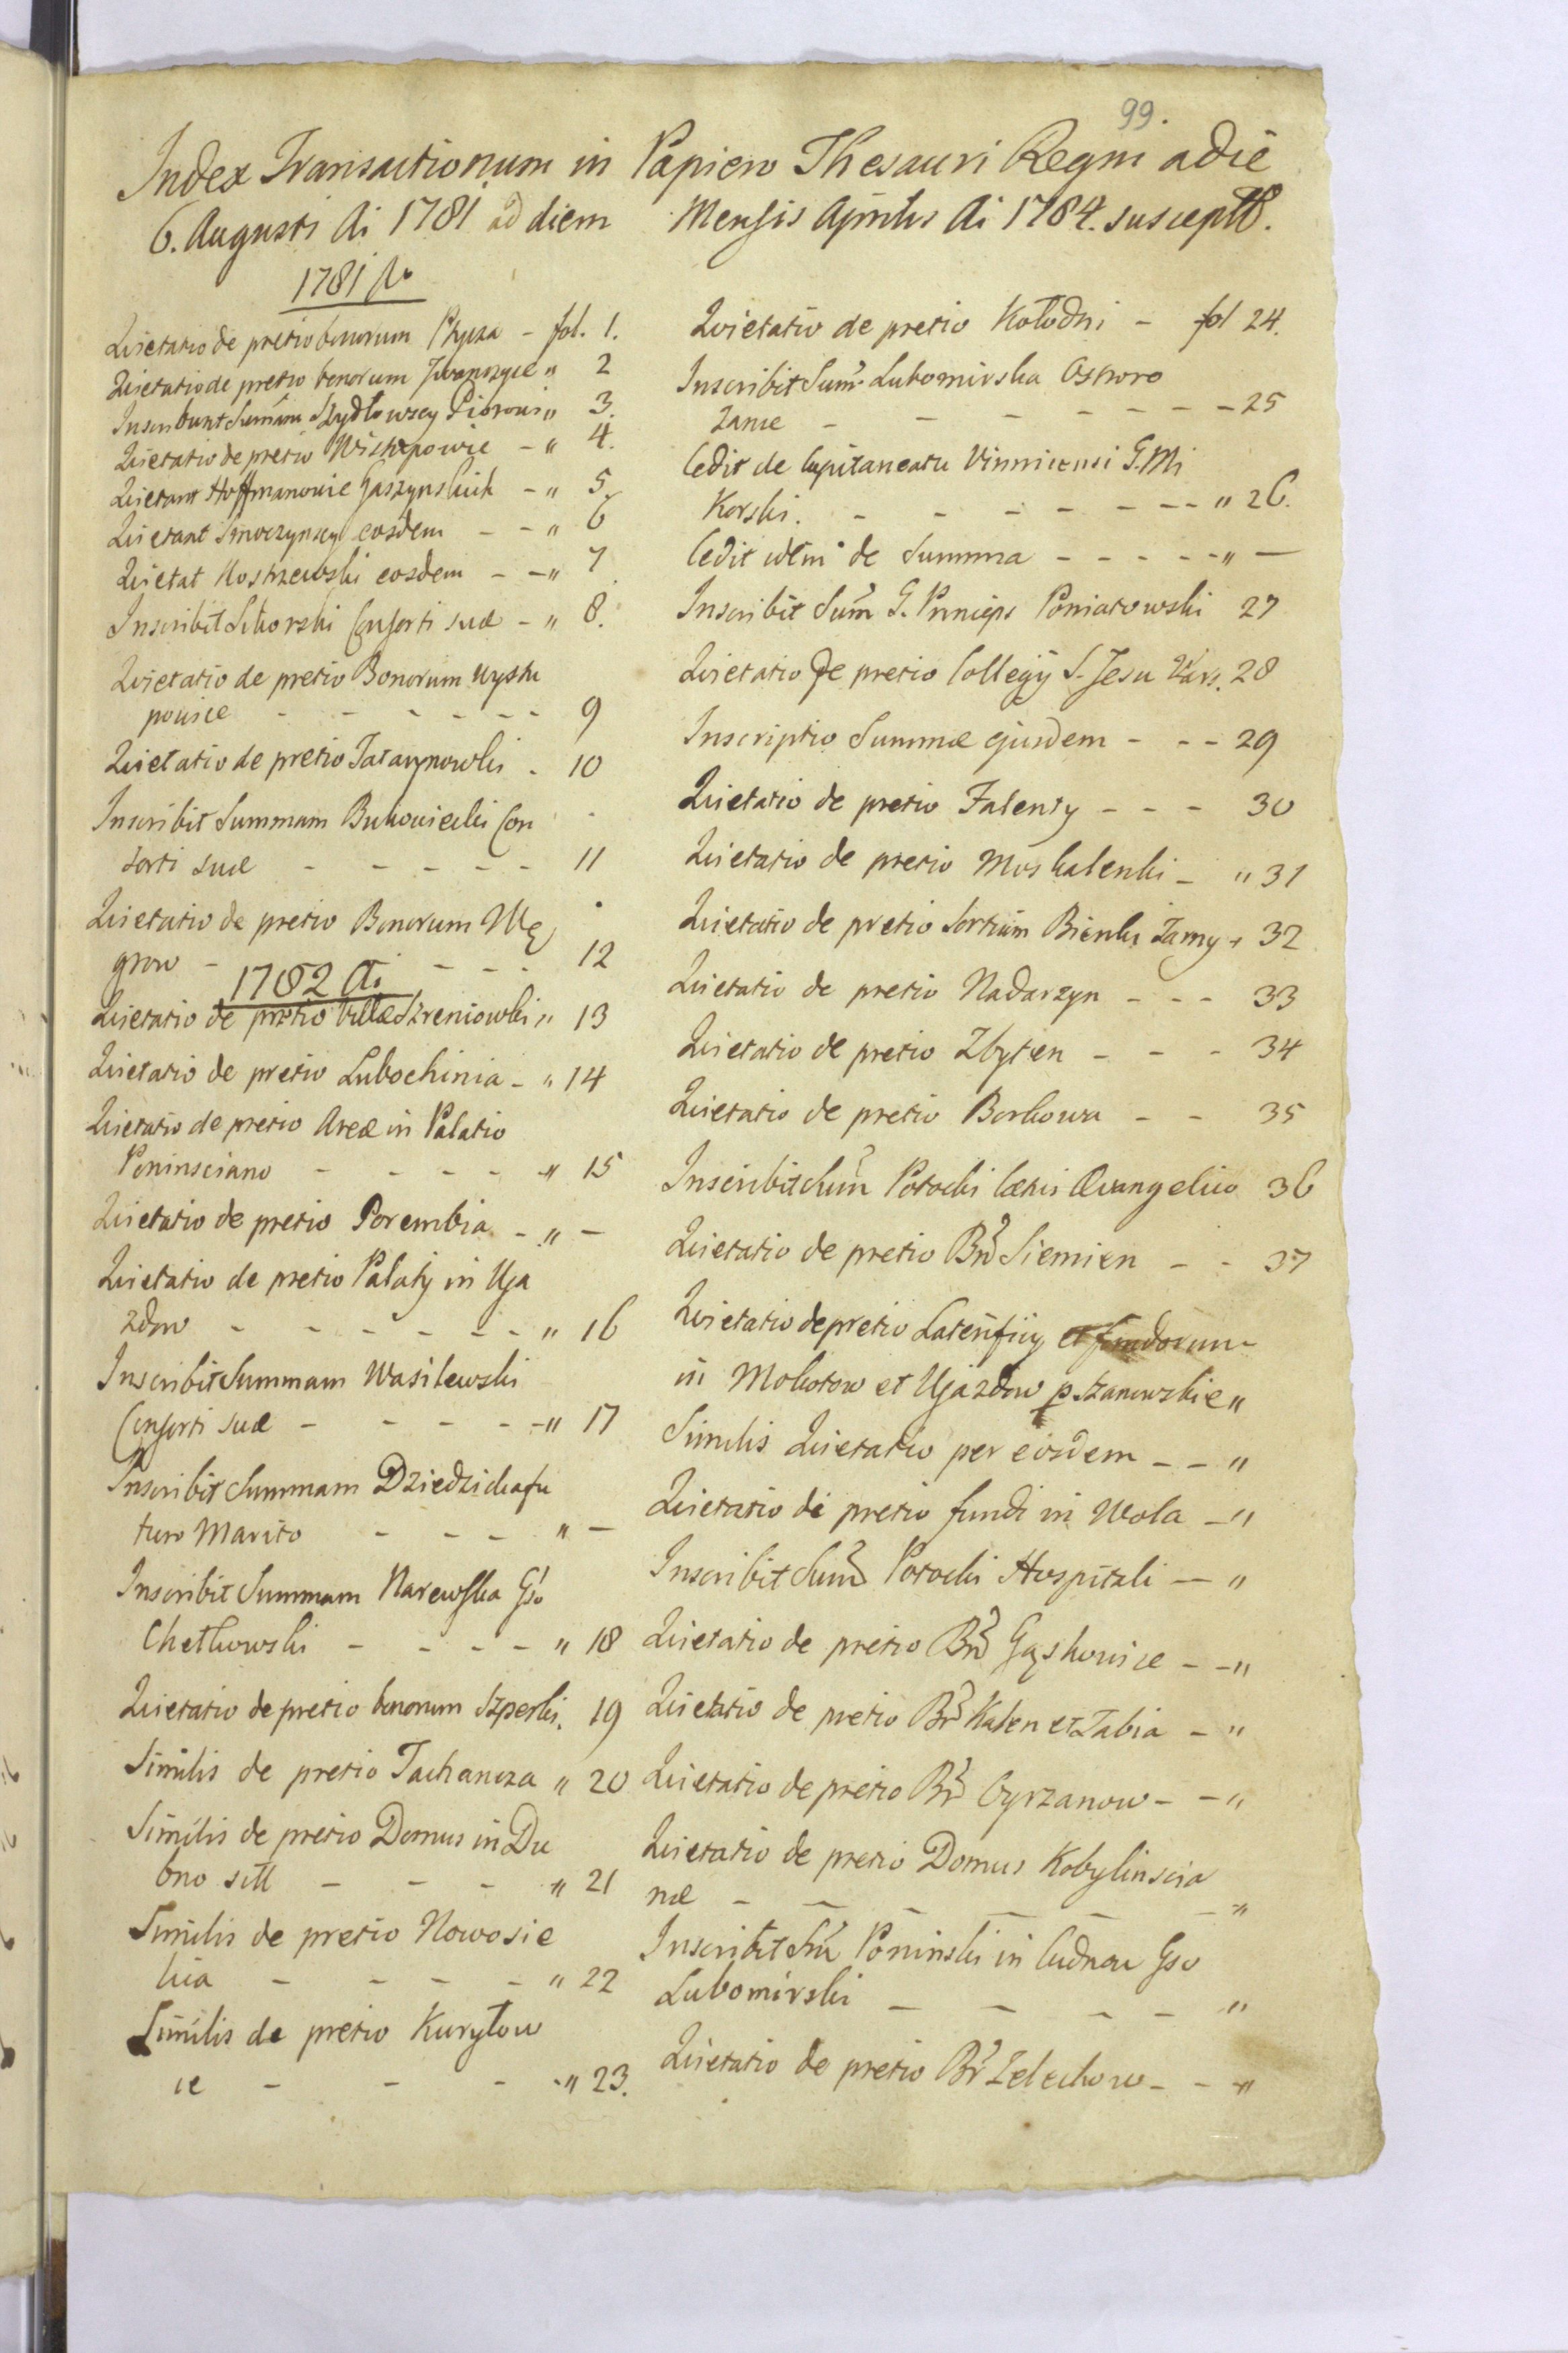 99.
Index Transactionum in Papiero Thesauri Regni a die
6. Augusti Ai 1781 ad diem Mensis Aprilis Ai 1784. suscept.
1781
Quietatio de pretio bonorum Ptycza - fol. 1.
Quietatio de pretio bonorum Iwanczyce " 2
Inscribunt Summam Szydłowscy Piorowi " 3.
Quietatio de pretio Wistępowie - " 4.
Quietant Hoffmanowie Gaszynskich - " 5.
Quietant Smoczynscy eosdem - - " 6
Quietat Kostrzewski eosdem - - " 7.
Inscribit Sikorski Consorti suæ - " 8.
Quietatio de pretio Bonorum Wystu
powice - - - - - - 9
Quietatio de pretio Tatarynowki - 10
Inscribit Summam Bukowiecki Con
sorti suæ - - - - - 11
Quietatio de pretio Bonorum Wę
grow - - - - 12
1782 Ai
Quietatio de pretio Villæ Szreniowki " 13
Quietatio de pretio Lubochinia - " 14
Quietatio de pretio Areæ in Palatio
Poninsciano - - - - " 15
Quietatio de pretio Porembia - " -
Quietatio de pretio Palatij in Uja
zdow - - - - - - " 16
Inscribit Summam Wasilewski
Consorti suæ - - - - - " 17
Inscribit Summam Dziedzicka fu
turo Marito - - - " -
Inscribit Summam Narewska Gso
Chełkowski - - - - " 18
Quietatio de pretio bonorum Szperki. 19
Similis de pretio Tachancza " 20
Similis de pretio Domus in Du
bno sitt - - - " 21
Similis de pretio Nowosie
lica - - - - " 22
Similis de pretio Kuryłow
ce - - - " 23.
Quietatio de pretio Kołodni - fol 24.
Inscribit Sum Lubomirska Ostroro
zance - - - - - - 25
Cedit de Capitaneatu Vinnicensi G. Mi
Korski. - - - - - - " 26.
Cedit idem de Summa - - - - - " -
Inscribit Sum G. Princeps Poniatowski 27
Quietatio de pretio Collegij S. Jesu Vars. 28
Inscriptio Summæ ejusdem - - - 29
Quietatio de pretio Falenty - - - 30
Quietatio de pretio Moskalenki - " 31
Quietatio de pretio Sortium Bienki Jamy " 32
Quietatio de pretio Nadarzyn - - - 33
Quietatio de pretio Zbyten - - - 34
Quietatio de pretio Borkowa - - 35
Inscribit Sum Potocki Cætui Evangelico 36
Quietatio de pretio Br Siemien - - 37
Quietatio de pretio Laterificij et fundorum
in Mokotow et Ujazdow p. Szanowskie "
Similis Quietatio per eosdem - - "
Quietatio de pretio fundi in Wola - "
Inscribit Sum Potocki Hospitali - "
Quietatio de pretio Br Gęskowice - - "
Quietatio de pretio Br Kalen et Tabia - "
Quietatio de pretio Br Cyrzanow - - "
Quietatio de pretio Domus Kobylinscia
næ - - - - - - "
Inscribit Sm Poninski in Cudnow Gso
Lubomirski - - - - "
Quietatio de pretio Br Zelechow - - "